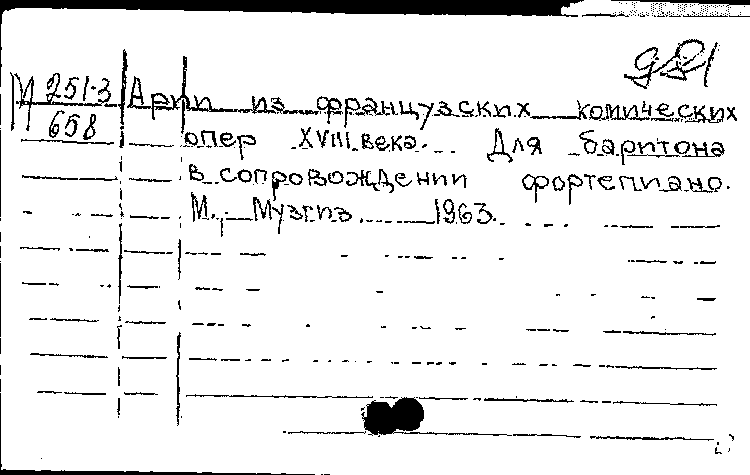 М 251-3
658
Арии из французских комических
опер XVIII века. Для баритона
в сопровождении фортепиано.
М., Музгиз 1963.